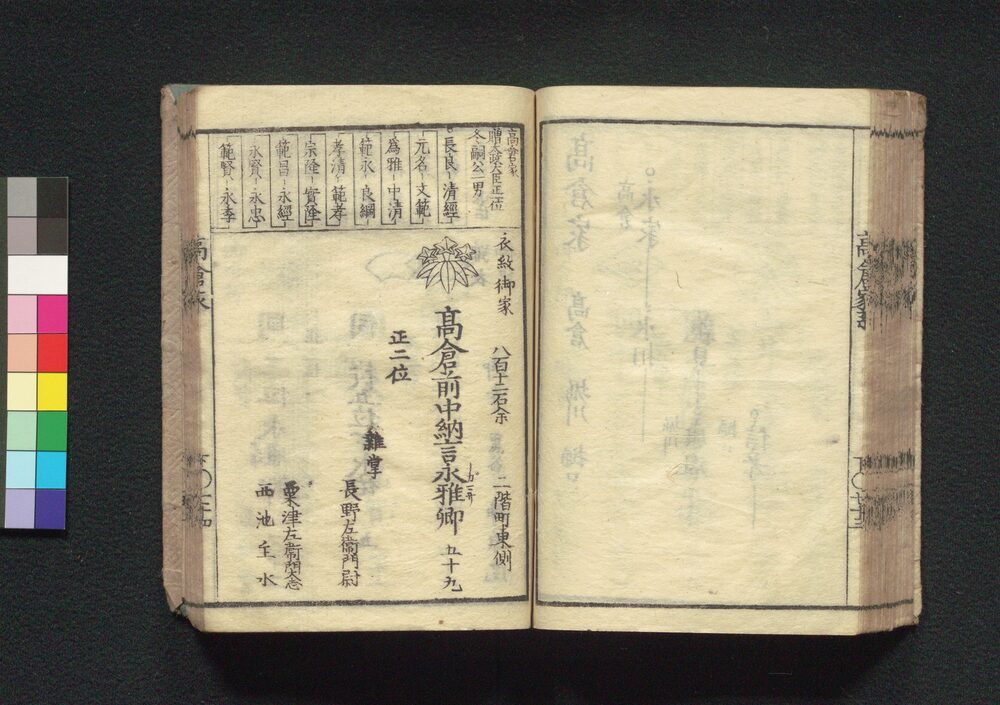 高倉家
贈太政大臣正一位
冬嗣公一男
長良 清經
元名 文範
爲雅 中清
範永 良綱
孝清 範孝
宗隆 實隆
範昌 永經
永賢 永忠
範賢 永季
衣紋御家
八百十二石余
二階町東側
高倉前中納言永雅卿 五十九
正二位
雜掌
長野左衞門尉
粟津左衞門大志
西池主水
高倉家